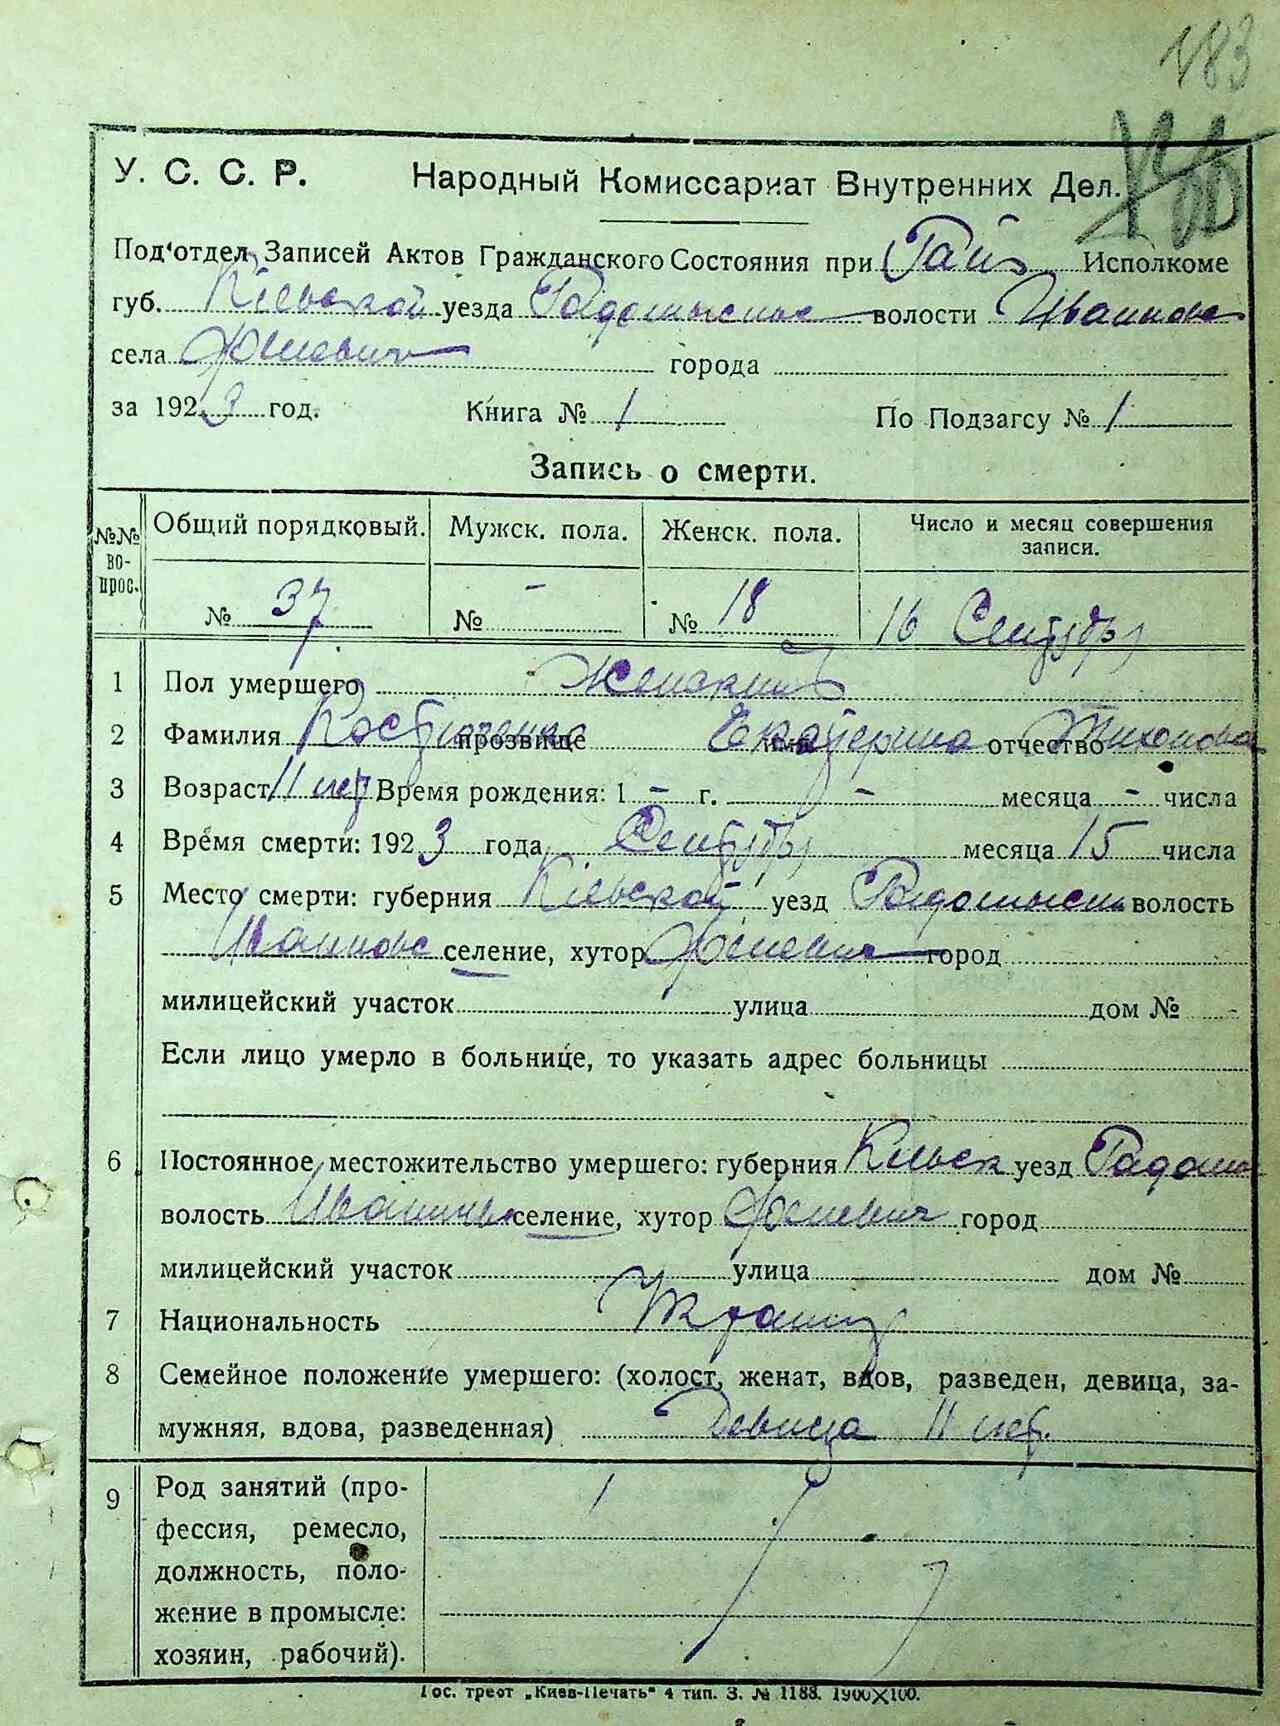 183
У. С. С. Р. Народный Комиссариат Внутренних Дел.
Под'отдел Записей Актов Гражданского Состояния при Райис Исполкоме
губ. Кіевской уезда Радомысльс волости Иванковс
села города
за 1923 год. Книга № 1 По Подзагсу № 1
Запись о смерти.
№№ во-прос. Общий порядковый. Мужск. пола. Женск. пола. Число и месяц совершения записи.
№ 37 № - № 18 16 Сентября
1 Пол умершего Женский
2 Фамилия Костюченко прозвище имя Екатерина отчество Тихонова
3 Возраст 11 лет Время рождения: 1 - г. - месяца - числа
4 Время смерти: 1923 года Сентября месяца 15 числа
5 Место смерти: губерния Кіевской уезд Радомысл волость
Иванковс селение, хутор город
милицейский участок улица дом № -
Если лицо умерло в больнице, то указать адрес больницы
6 Постоянное местожительство умершего: губерния Кіевск уезд Радомы
волость селение, хутор город
милицейский участок улица дом №
7 Национальность
8 Семейное положение умершего: (холост, женат, вдов, разведен, девица, за-
мужняя, вдова, разведенная) Девица 11 лет.
9 Род занятий (про-
фессия, ремесло,
должность, поло-
жение в промысле:
хозяин, рабочий).
Гос. трест „Киев-Печать" 4 тип. З. № 1188. 1900×100.